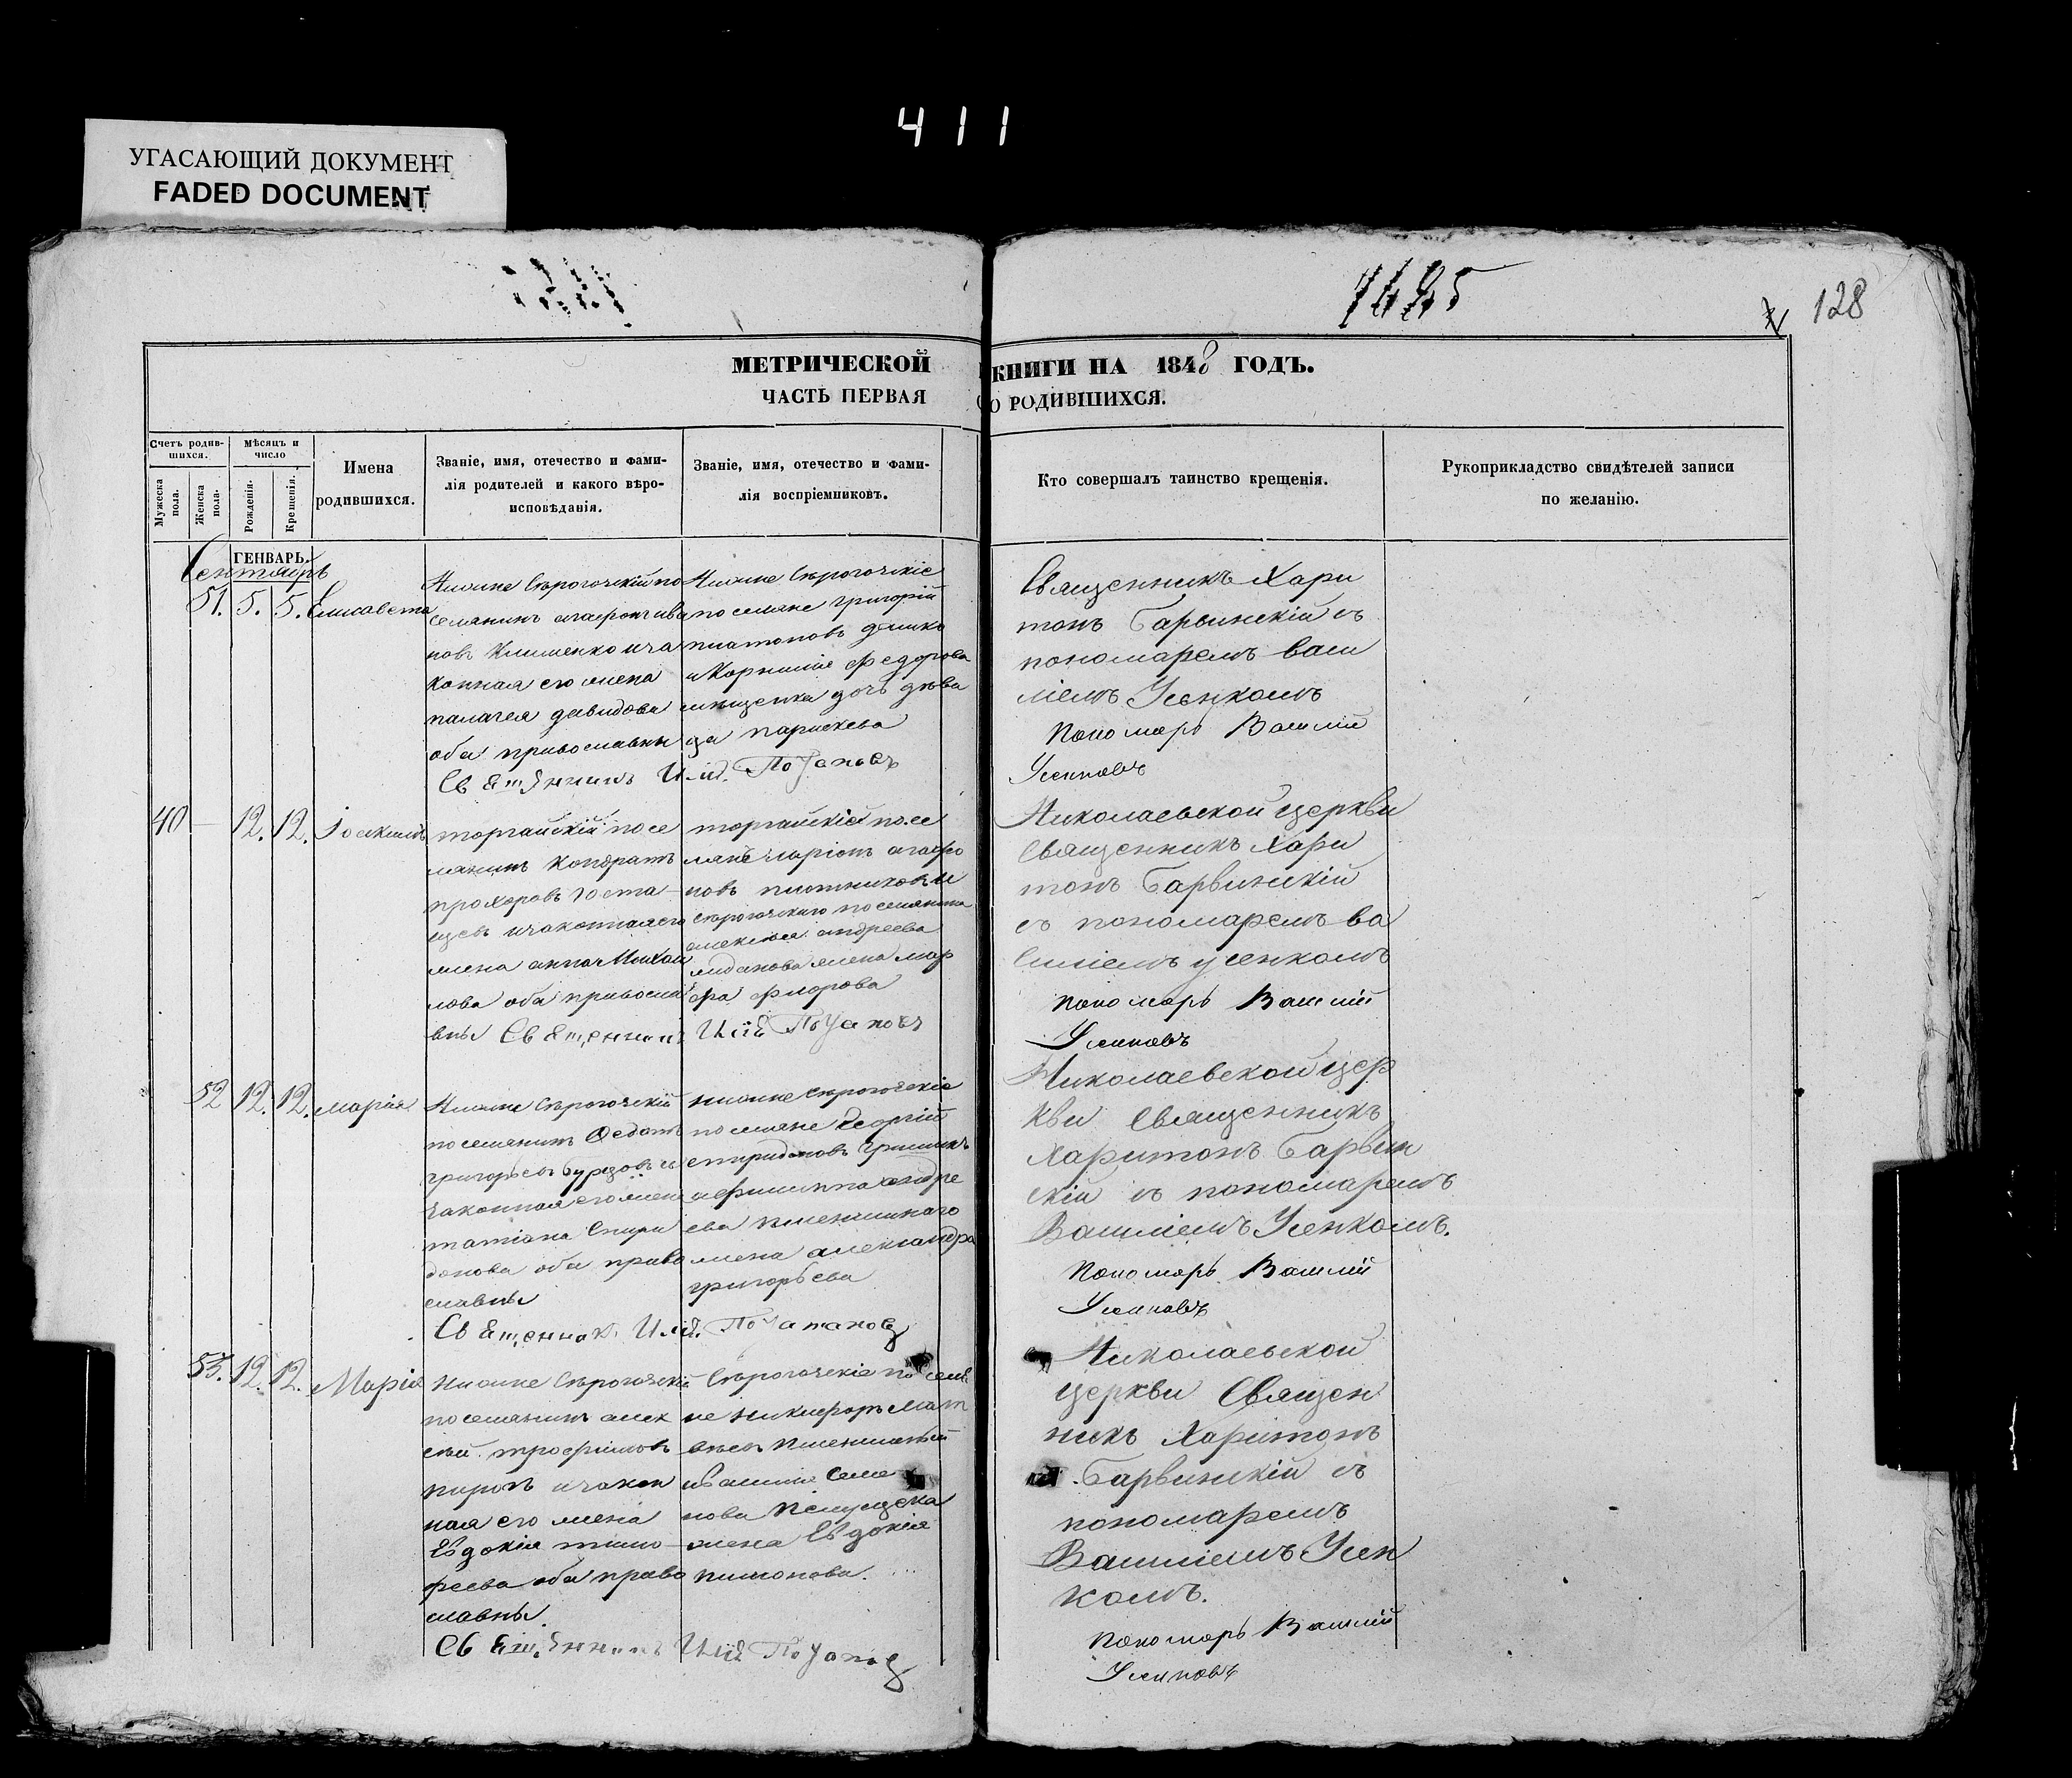 411
УГАСАЮЩИЙ ДОКУМЕНТ
FADED DOCUMENT
128
МЕТРИЧЕСКОЙ КНИГИ НА 1848 ГОДЪ.
ЧАСТЬ ПЕРВАЯ О РОДИВШИХСЯ.
Счетъ родив-
шихся.
Мужеска пола.
Женска пола.
Мѣсяцъ и число
Рожденія.
Крещенія.
Имена
родившихся.
Званіе, имя, отечество и фами-
лія родителей и какого вѣро-
исповѣданія.
Званіе, имя, отечество и фами-
лія воспріемниковъ.
Кто совершалъ таинство крещенія.
Рукоприкладство свидѣтелей записи
по желанію.
ГЕНВАРЬ.
Сентябрь
51. 5. 5. Елисавета
Нижне Сѣрогозскій по
селянинъ агафонъ ива
новъ Клименко и за
конная его жена
палагея давидова
оба православны
Нижне Сѣрогозскіе
поселяне григорій
платоновъ
и Корнилія федорова
дочь дѣви
ца параскева
Священникъ Хари
тонъ Барвинскій съ
пономаремъ васи
ліемъ Усенкомъ
Пономарь Василій
Усенковъ
40 — 12. 12. Іоакимъ
торгайскій посе
лянинъ кондратъ
прохоровъ
и законная его
жена анна Михаи
лова оба правосла
вны Священникъ
торгайскій посе
агафо
новъ плотниковъ и
сѣрогозскаго поселянина
алексѣя андреева
жена мар
фа флорова
Николаевской церкви
Священникъ Хари
тонъ Барвинскій
съ пономаремъ ва
силіемъ усенкомъ
Пономарь Василій
Усенковъ
52 12. 12. Марія
Нижне Сѣрогозскій
поселянинъ Федотъ
григорьевъ и
законная его жена
татіана Спири
донова оба право
славны
Священникъ
нижне Сѣрогозскіе
поселяне Георгій
спиридоновъ
и филиппа андре
ева пшеничнаго
жена александра
григорьева
Николаевской цер
кви Священникъ
Харитонъ Барвин
скій съ пономаремъ
Василіемъ Усенкомъ.
Пономарь Василій
Усенковъ
53. 12. 12. Марія
Нижне Сѣрогозскій
поселянинъ алек
сѣй трофимовъ
и закон
ная его жена
Евдокія тимо
феева оба право
славны
Сѣрогозскіе поселя
не никифоръ Мат
вѣевъ пшеничный
и Василія Семе
нова
жена Евдокія
Николаевской
церкви Священ
никъ Харитонъ
Барвинскій съ
пономаремъ
Василіемъ Усен
комъ.
Пономарь Василій
Усенковъ